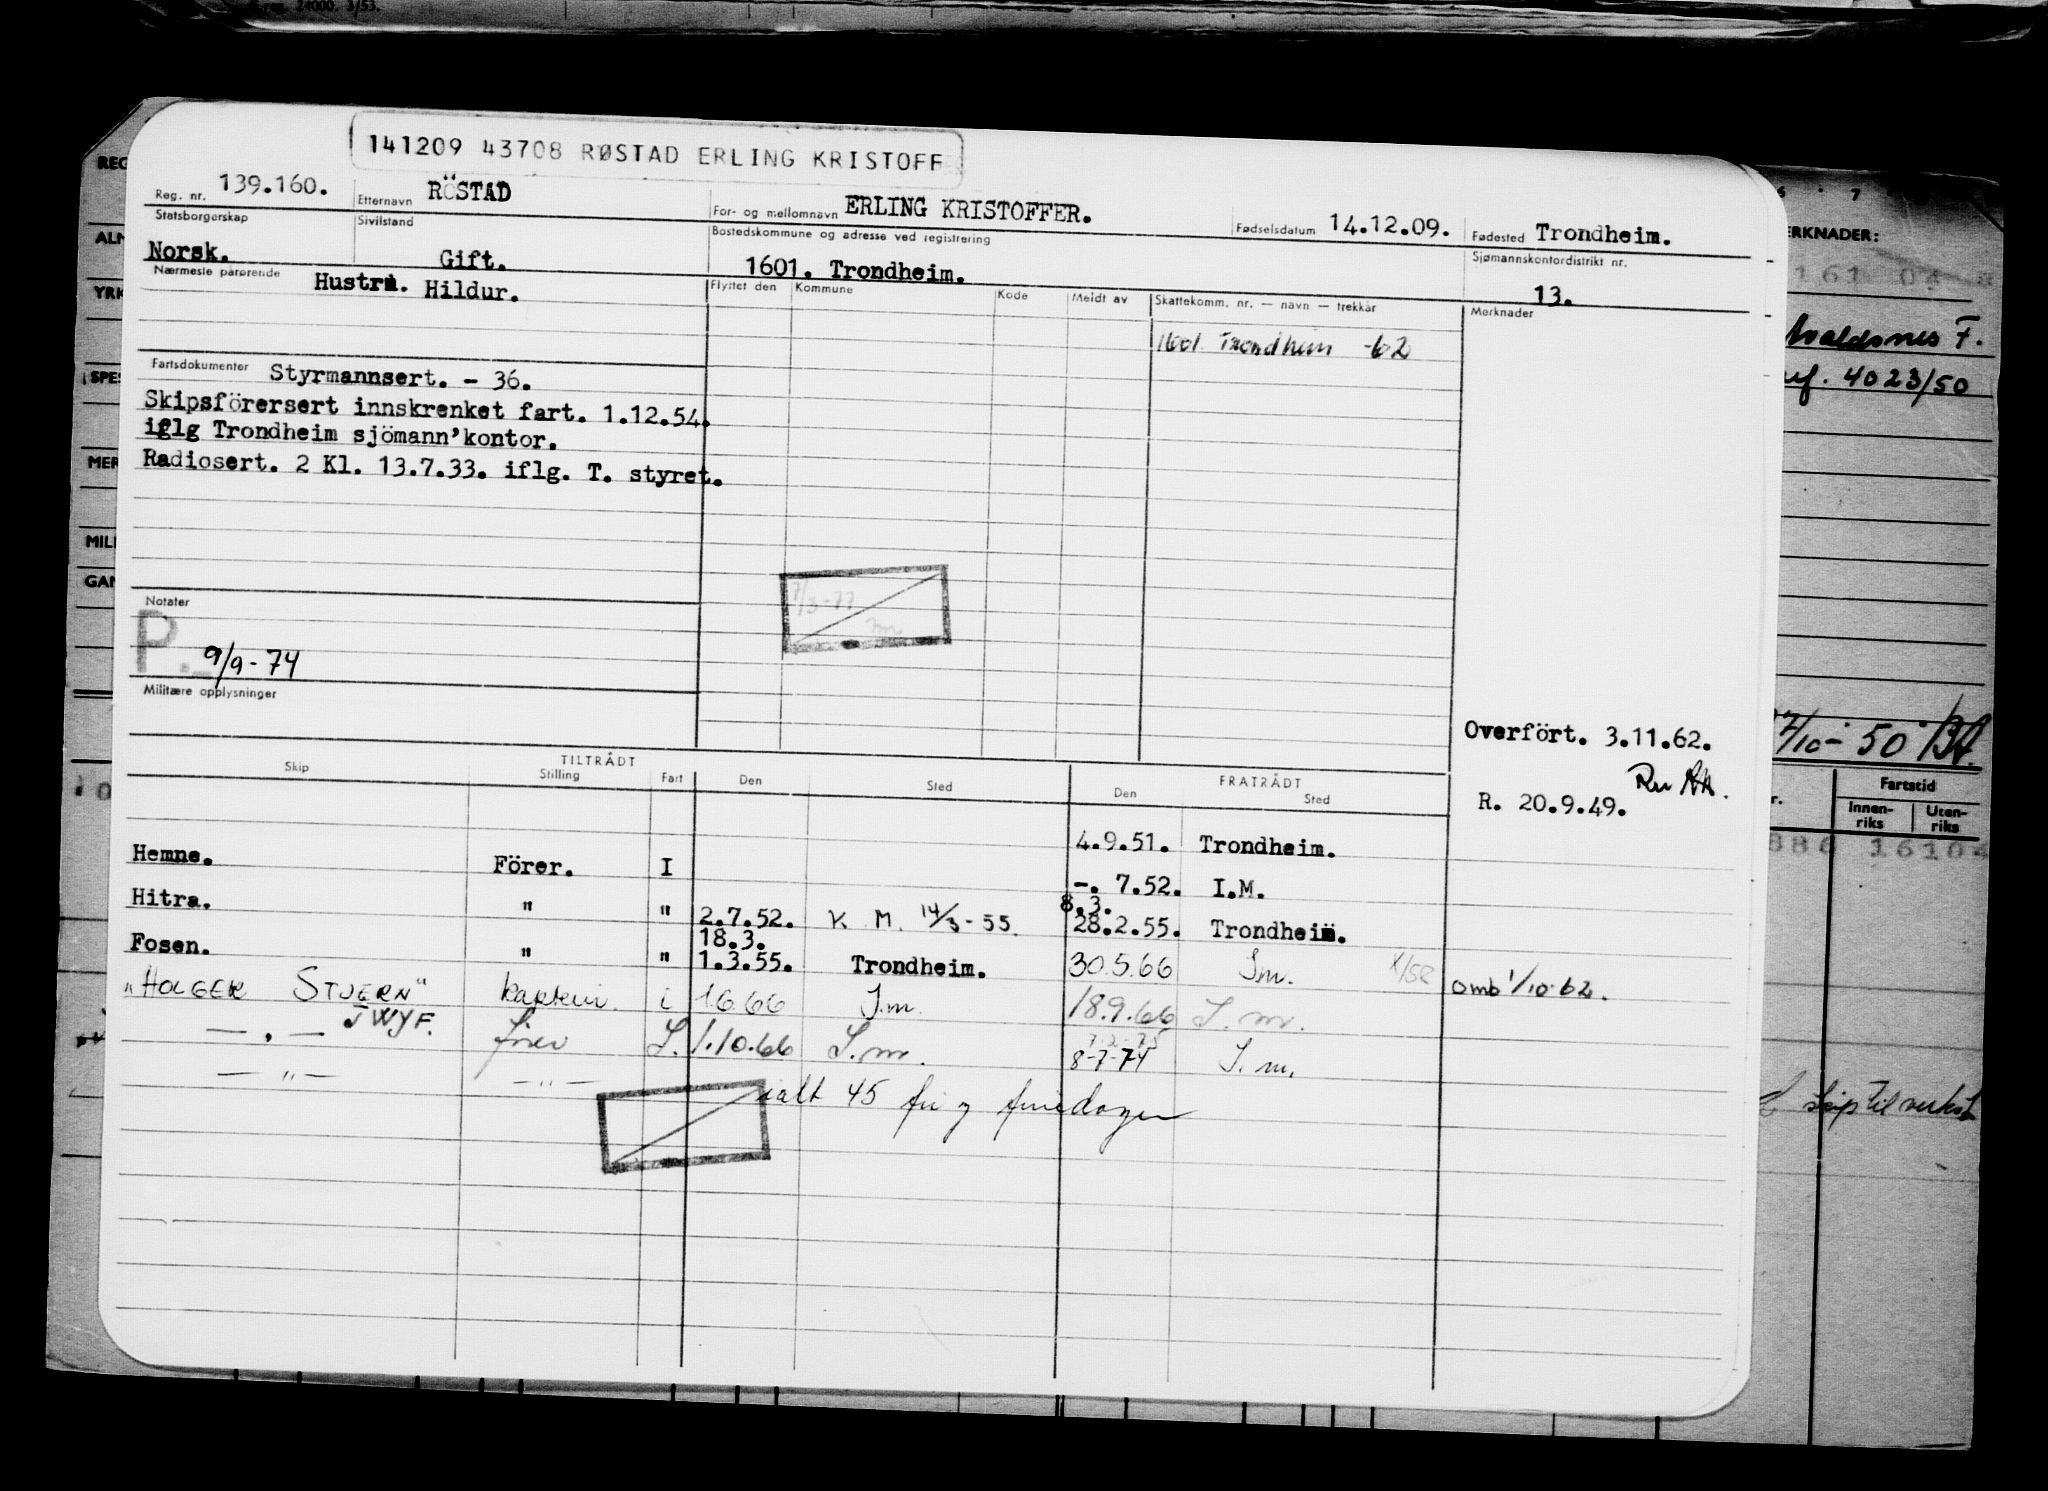 reg. 24000. 3/53.
141209 43708 RØSTAD ERLING KRISTOFF
Reg. nr. 139.160. Etternavn RÖSTAD For- og mellomnavn ERLING KRISTOFFER. Fødselsdatum 14.12.09. Fødested Trondheim.
Statsborgerskap Sivilstand Bostedskommune og adresse ved registrering Sjømannskontordistrikt nr.
Norsk. Gift. 1601. Trondheim. 13.
Nærmeste pårørende Hustru. Hildur. Flyttet den Kommune Kode Meldt av Skattekomm. nr. — navn — trekkår Merknader
1601 Trondheim -62
Fartsdokumenter Styrmannsert. - 36.
Skipsförersert innskrenket fart. 1.12.54.
iflg Trondheim sjömann'kontor.
Radiosert. 2 Kl. 13.7.33. iflg. T. styret.
Notater
7/3-77
P. 9/9-74
Militære opplysninger
Overfört. 3.11.62.
R. 20.9.49.
TILTRÅDT FRATRÅDT
Skip Stilling Fart Den Sted Den Sted
4.9.51. Trondheim.
Hemne. Förer. I -. 7.52. I.M.
8.3.
Hitra. " " 2.7.52. K. M. 14/3-55. 28.2.55. Trondheim.
18.3.
Fosen. " " 1.3.55. Trondheim. 30.5.66 I.m.
omb 1/10.62.
"HOLGER STJERN" kaptein i 1.6.66 I.m. 18.9.66 I.m.
JWYF.
— . — fører I. 1.10.66 I.m. 8-7-74 I.m.
— " — — " —
ialt 45 fri og feriedager
REG
ALM
YRK
SPES
MER
MILI
GAN
6 7
ERKNADER:
161 04
Avaldsnes F.
4023/50
7/10-50
Fartstid
Innen-
riks
Uten-
riks
886 16104
skip til